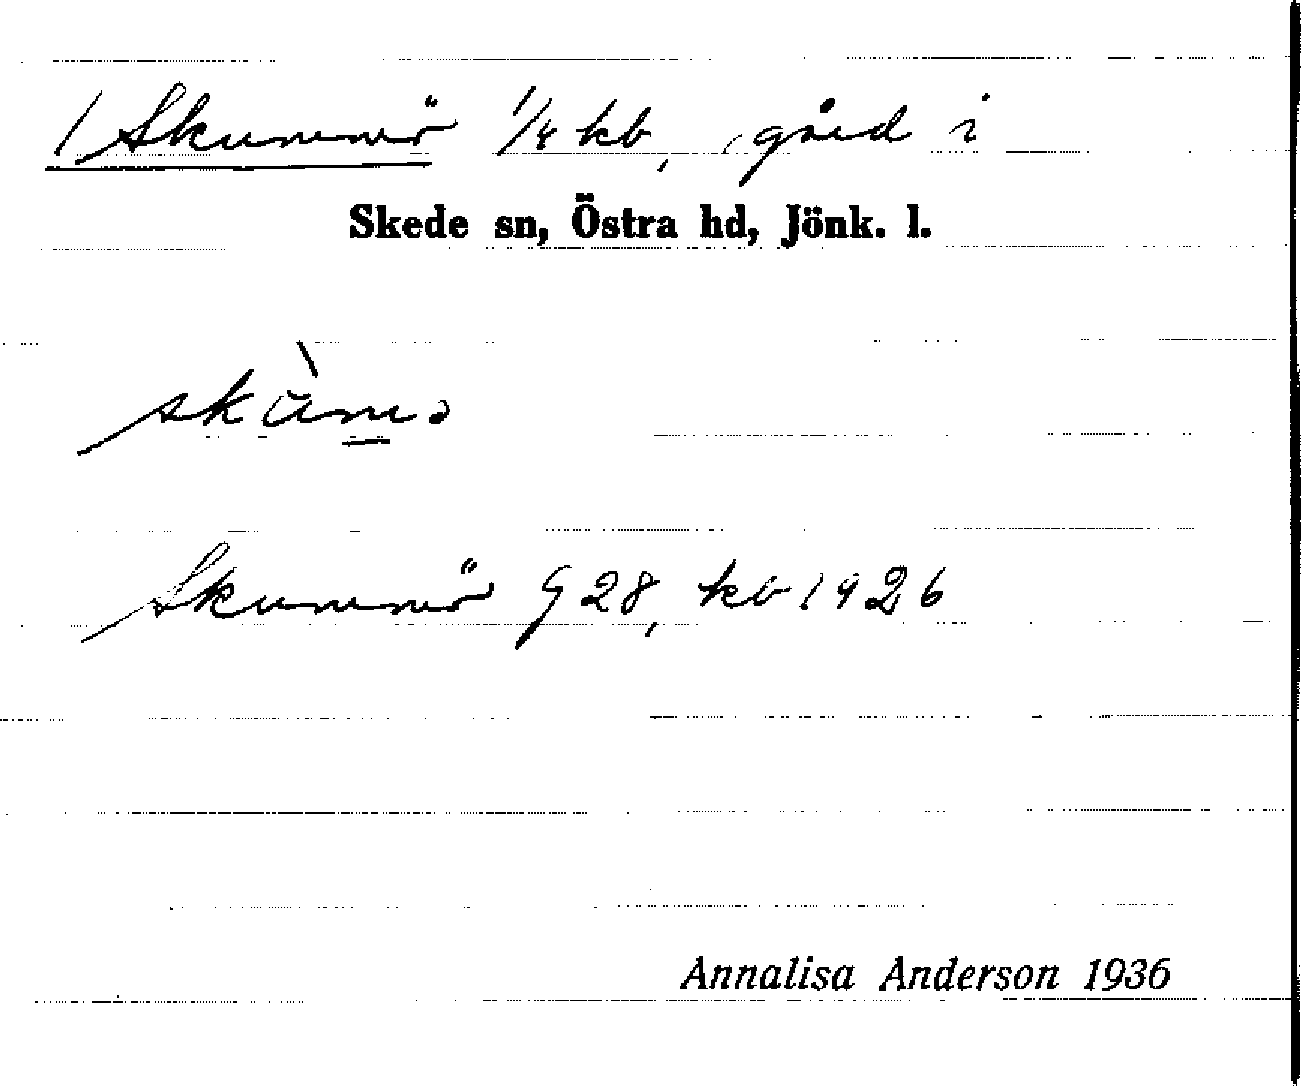 / Skummö 1/4 kb, gård i
Skede sn, Östra hd, Jönk. l.
Skummö G 28, kb 1926
Annalisa Anderson 1936